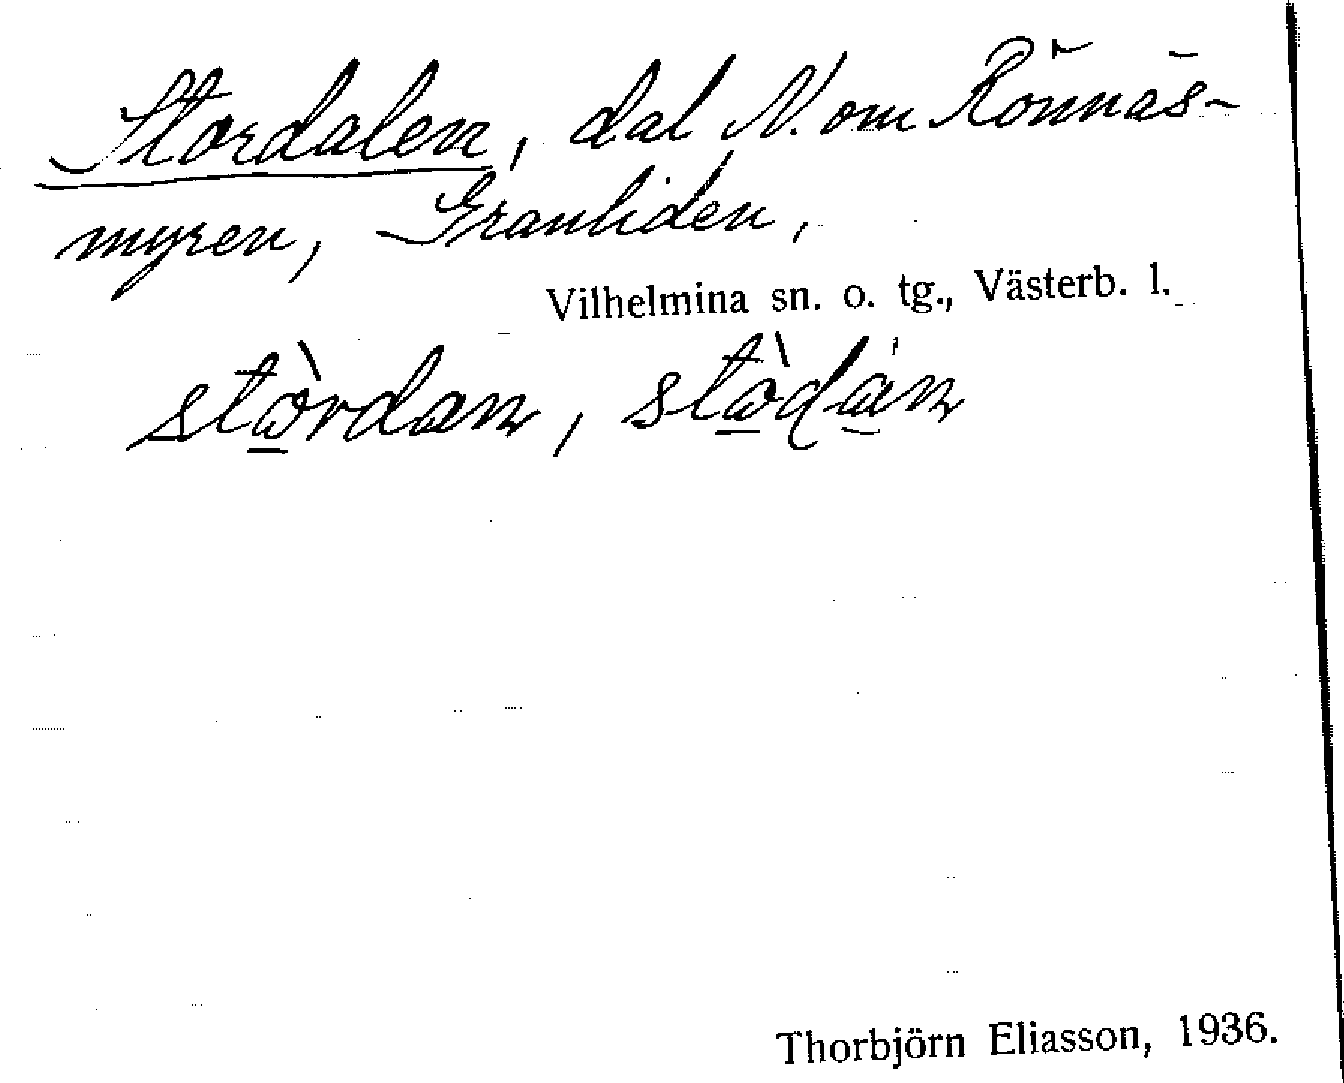 Stordalen, dal N. om Rönnäs-
myren, Granliden,
Vilhelmina sn. o. tg., Västerb. l.
stò̱rdan, stò̱da̱n
Thorbjörn Eliasson, 1936.